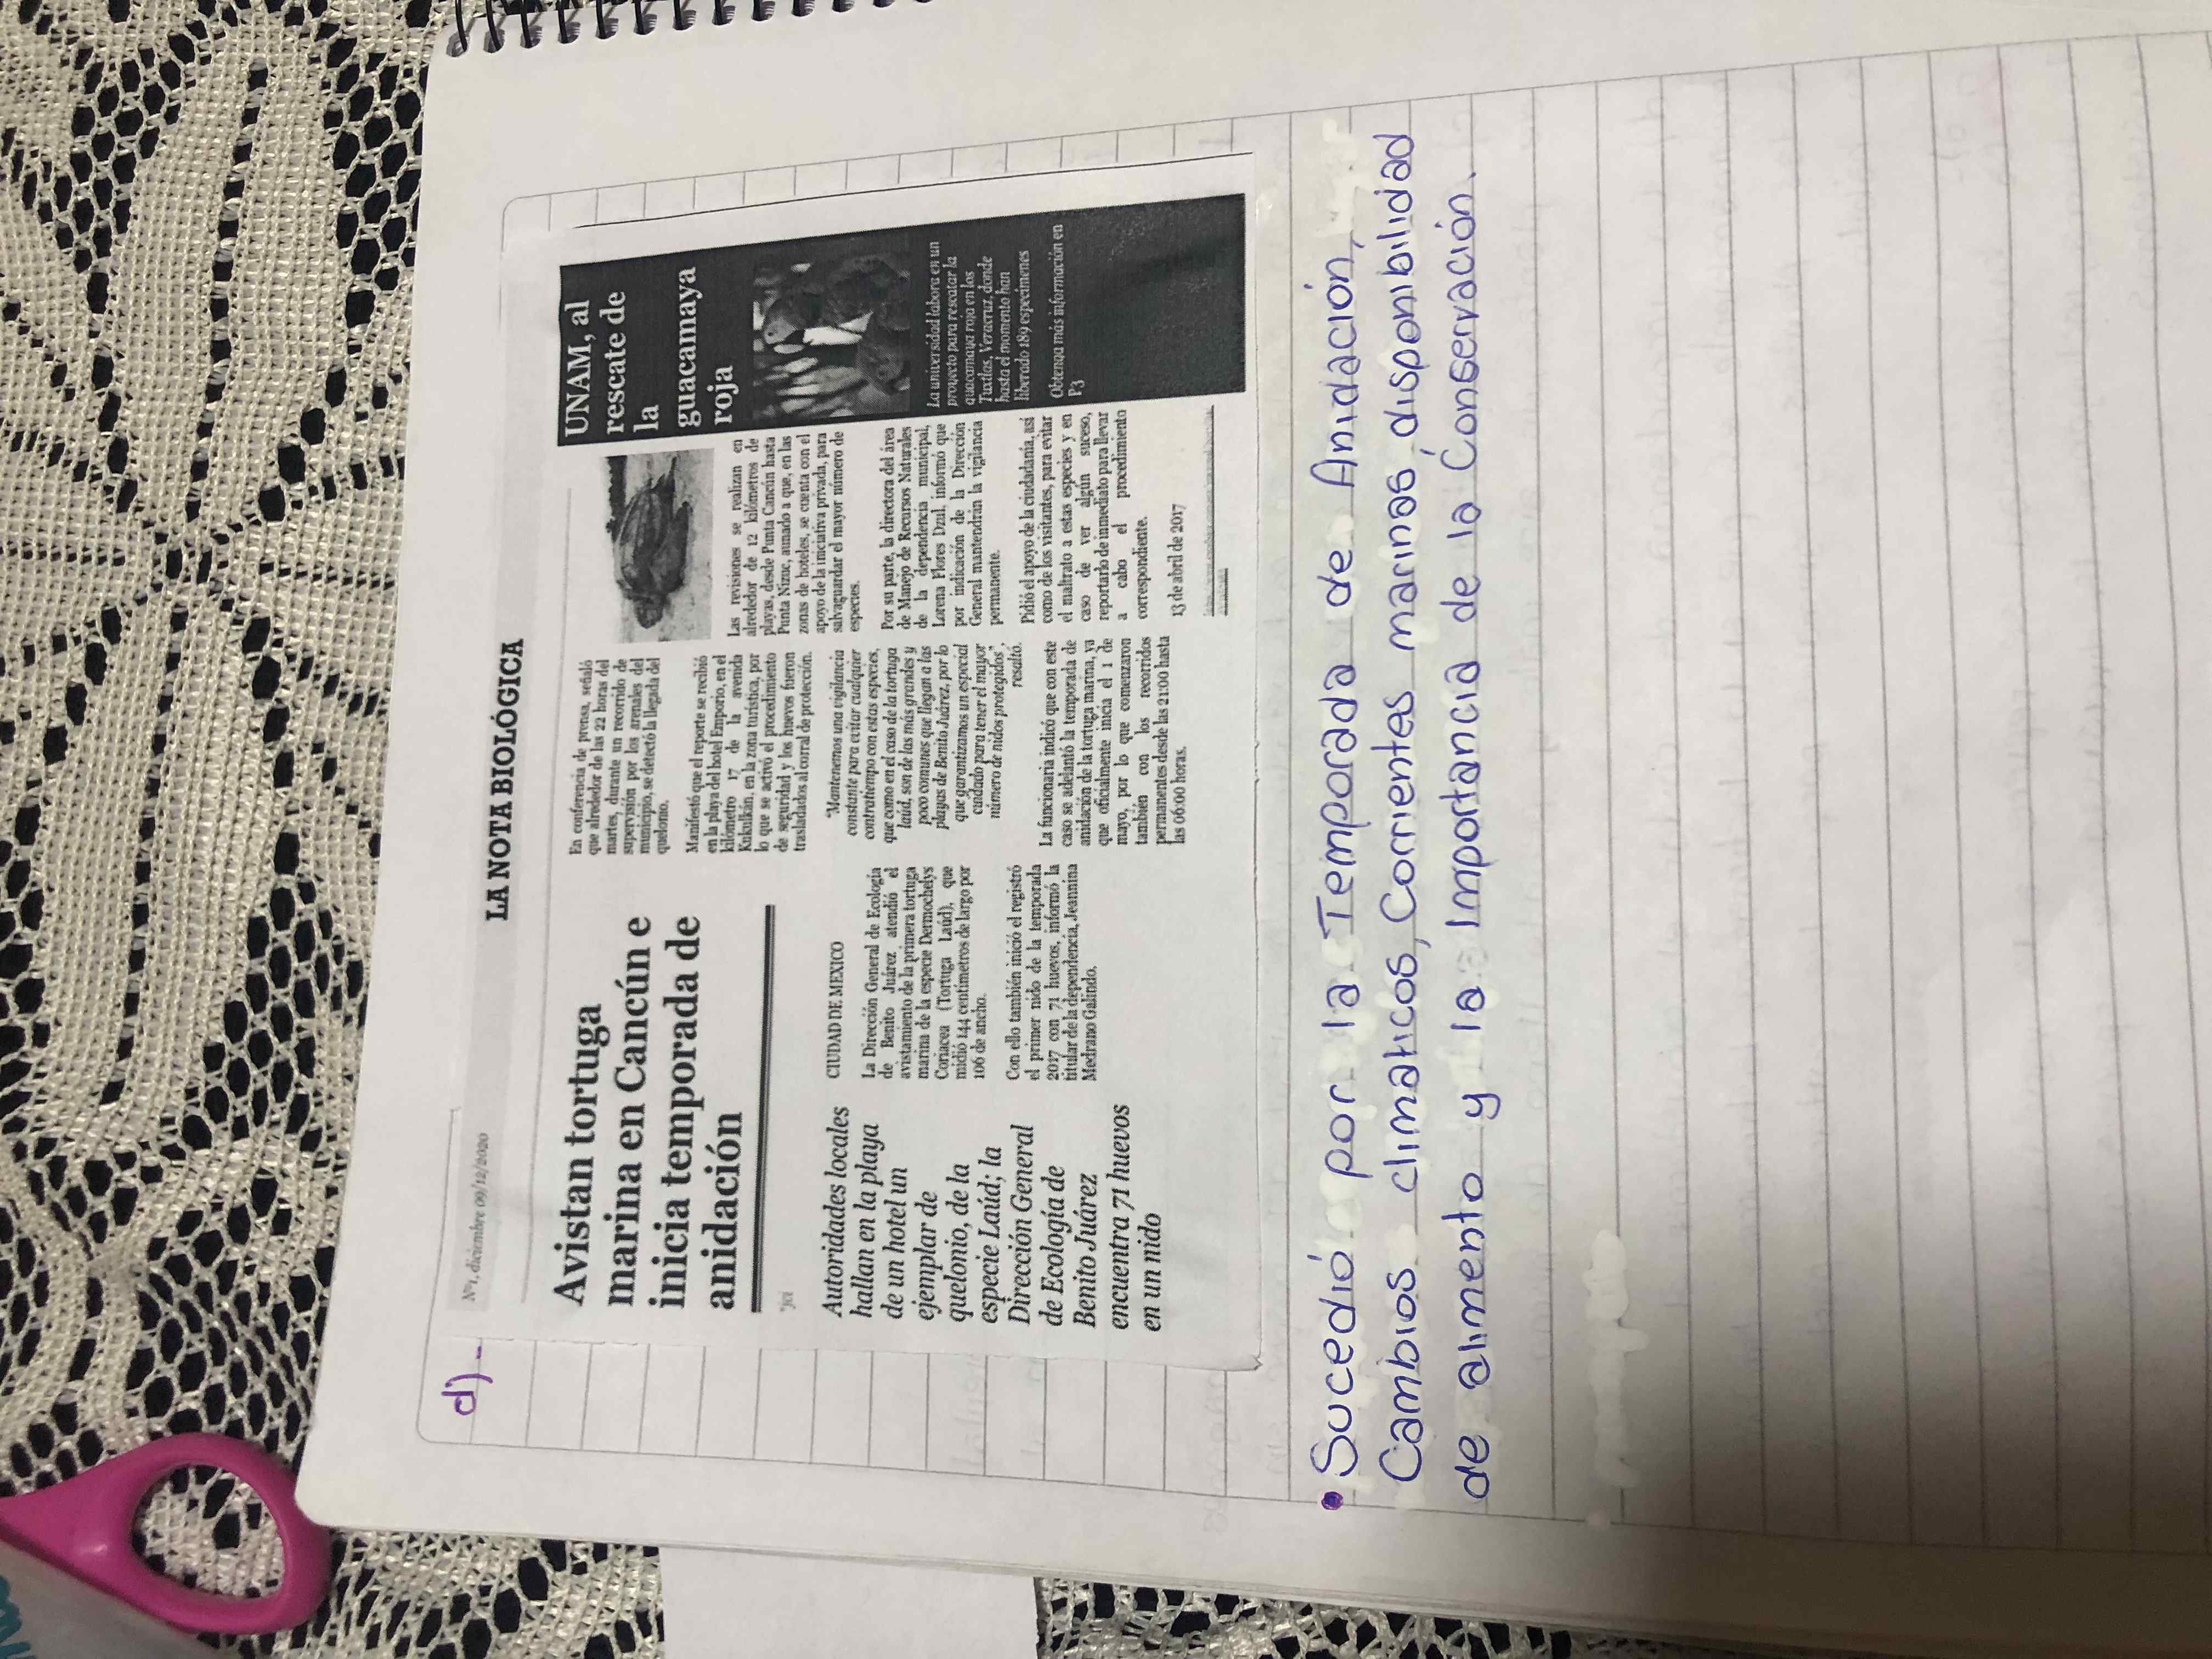 d)-
Nº1, diciembre 09/12/2020
LA NOTA BIOLÓGICA
Avistan tortuga
marina en Cancún e
inicia temporada de
anidación
Autoridades locales
hallan en la playa
de un hotel un
ejemplar de
quelonio, de la
especie Laúd; la
Dirección General
de Ecología de
Benito Juárez
encuentra 71 huevos
en un nido
CIUDAD DE MEXICO
La Dirección General de Ecología
de Benito Juárez atendió el
avistamiento de la primera tortuga
marina de la especie Dermochelys
Coriacea (Tortuga Laúd), que
midió 144 centímetros de largo por
106 de ancho.
Con ello también inició el registró
el primer nido de la temporada
2017 con 71 huevos, informó la
titular de la dependencia, Jeannina
Medrano Galindo.
En conferencia de prensa, señaló
que alrededor de las 22 horas del
martes, durante un recorrido de
supervisión por los arenales del
municipio, se detectó la llegada del
quelonio.
Manifestó que el reporte se recibió
en la playa del hotel Emporio, en el
kilómetro 17 de la avenida
Kukulkán, en la zona turística, por
lo que se activó el procedimiento
de seguridad y los huevos fueron
trasladados al corral de protección.
"Mantenemos una vigilancia
constante para evitar cualquier
contratiempo con estas especies,
que como en el caso de la tortuga
laúd, son de las más grandes y
poco comunes que llegan a las
playas de Benito Juárez, por lo
que garantizamos un especial
cuidado para tener el mayor
número de nidos protegidos",
resaltó.
La funcionaria indicó que con este
caso se adelantó la temporada de
anidación de la tortuga marina, ya
que oficialmente inicia el 1 de
mayo, por lo que comenzaron
también con los recorridos
permanentes desde las 21:00 hasta
las 06:00 horas.
Las revisiones se realizan en
alrededor de 12 kilómetros de
playas, desde Punta Cancún hasta
Punta Nizuc, aunado a que, en las
zonas de hoteles, se cuenta con el
apoyo de la iniciativa privada, para
salvaguardar el mayor número de
especies.
Por su parte, la directora del área
de Manejo de Recursos Naturales
de la dependencia municipal,
Lorena Flores Dzul, informó que
por indicación de la Dirección
General mantendrán la vigilancia
permanente.
Pidió el apoyo de la ciudadanía, así
como de los visitantes, para evitar
el maltrato a estas especies y en
caso de ver algún suceso,
reportarlo de inmediato para llevar
a cabo el procedimiento
correspondiente.
13 de abril de 2017
UNAM, al
rescate de
la
guacamaya
roja
La universidad labora en un
proyecto para rescatar la
guacamaya roja en los
Tuxtlas, Veracruz, donde
hasta el momento han
liberado 189 especímenes
Obtenga más información en
P3
• Sucedió por la Temporada de Anidación,
Cambios climaticos, Corrientes marinas, disponibilidad
de alimento y la Importancia de la Conservación.